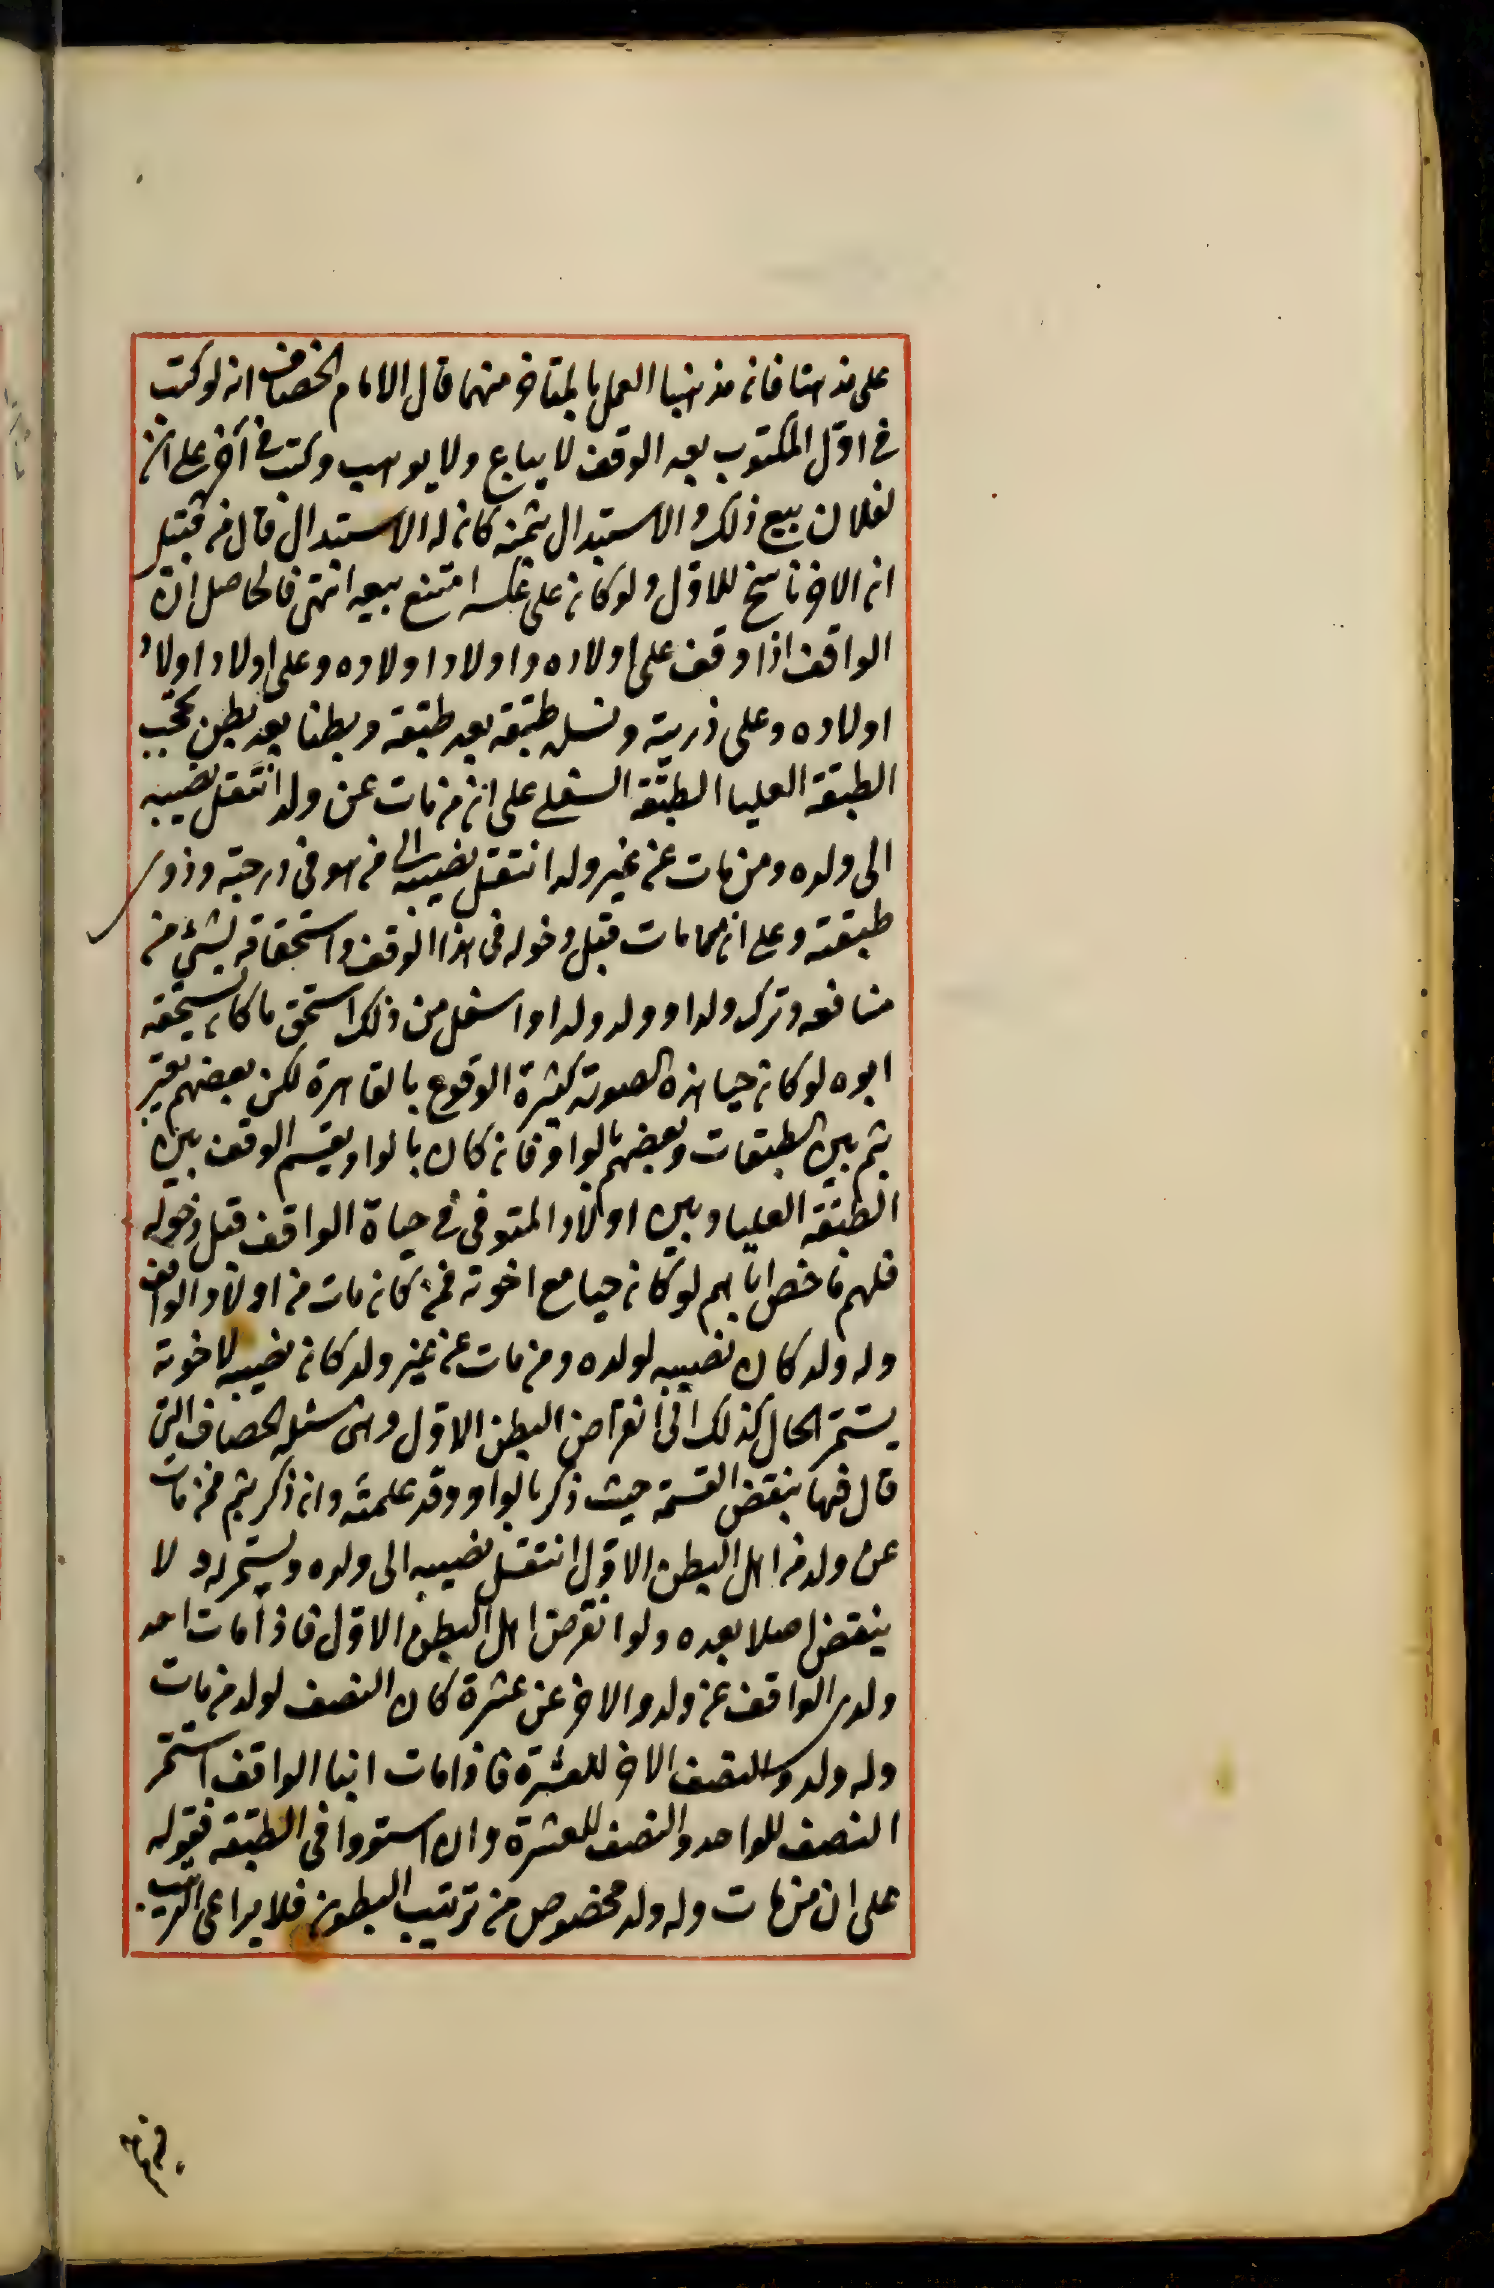 على مذهبنا فان مذهبنا العمل بالمتاخر منهما قال الامام الخصاف انه لو كتب
في اول المكتوب بعد الوقف لا يباع ولا يوهب وكتب في آخره على ان
لفلان بيع ذلك والاستبدال بثمنه كان له الاستبدال قال من قبل
ان الاخر ناسخ للاول ولو كان على عكسه امتنع بيعه انتهى فالحاصل ان
الواقف اذا وقف على اولاده واولاد اولاده وعلى اولاد اولاد
اولاده وعلى ذريته ونسله طبقة بعد طبقة وبطنا بعد بطن تحجب
الطبقة العليا الطبقة السفلى على ان من مات عن ولد انتقل نصيبه
الى ولده ومن مات عن غير ولد انتقل نصيبه الى من هو في درجته وذوي
طبقته وعلى ان من مات قبل دخوله في هذا الوقف واستحقاقه لشئ من
منافعه وترك ولدا او ولد ولد او اسفل من ذلك استحق ما كان يستحقه
ابوه لو كان حيا هذه الصورة كثيرة الوقوع بالقاهرة لكن بعضهم يعبر
بثم بين الطبقات وبعضهم بالواو فان كان بالواو يقسم الوقف بين
الطبقة العليا وبين اولاد المتوفى في حياة الواقف قبل دخوله
فلهم ما خص اباهم لو كان حيا مع اخوته فمن كان مات من اولاد الواقف
وله ولد كان نصيبه لولده ومن مات عن غير ولد كان نصيبه لاخوته
يستمر الحال كذلك الى انقراض البطن الاول وهي مسئلة الخصاف التي
قال فيها بنقض القسمة حيث ذكر بالواو وقد علمته وان ذكر بثم فمن مات
عن ولد من اهل البطن الاول انتقل نصيبه الى ولده ويستمر له ولا
ينقض اصلا بعده ولو انقرض اهل البطن الاول فاذا مات احد
ولدي الواقف عن ولد والاخر عن عشرة كان النصف لولد من مات
وله ولد والنصف الاخر للعشرة فاذا مات ابنا الواقف استمر
النصف للواحد والنصف للعشرة وان استووا في الطبقة فقوله
على ان من مات وله ولد مخصوص من ترتيب البطون فلا يراعى الترتيب